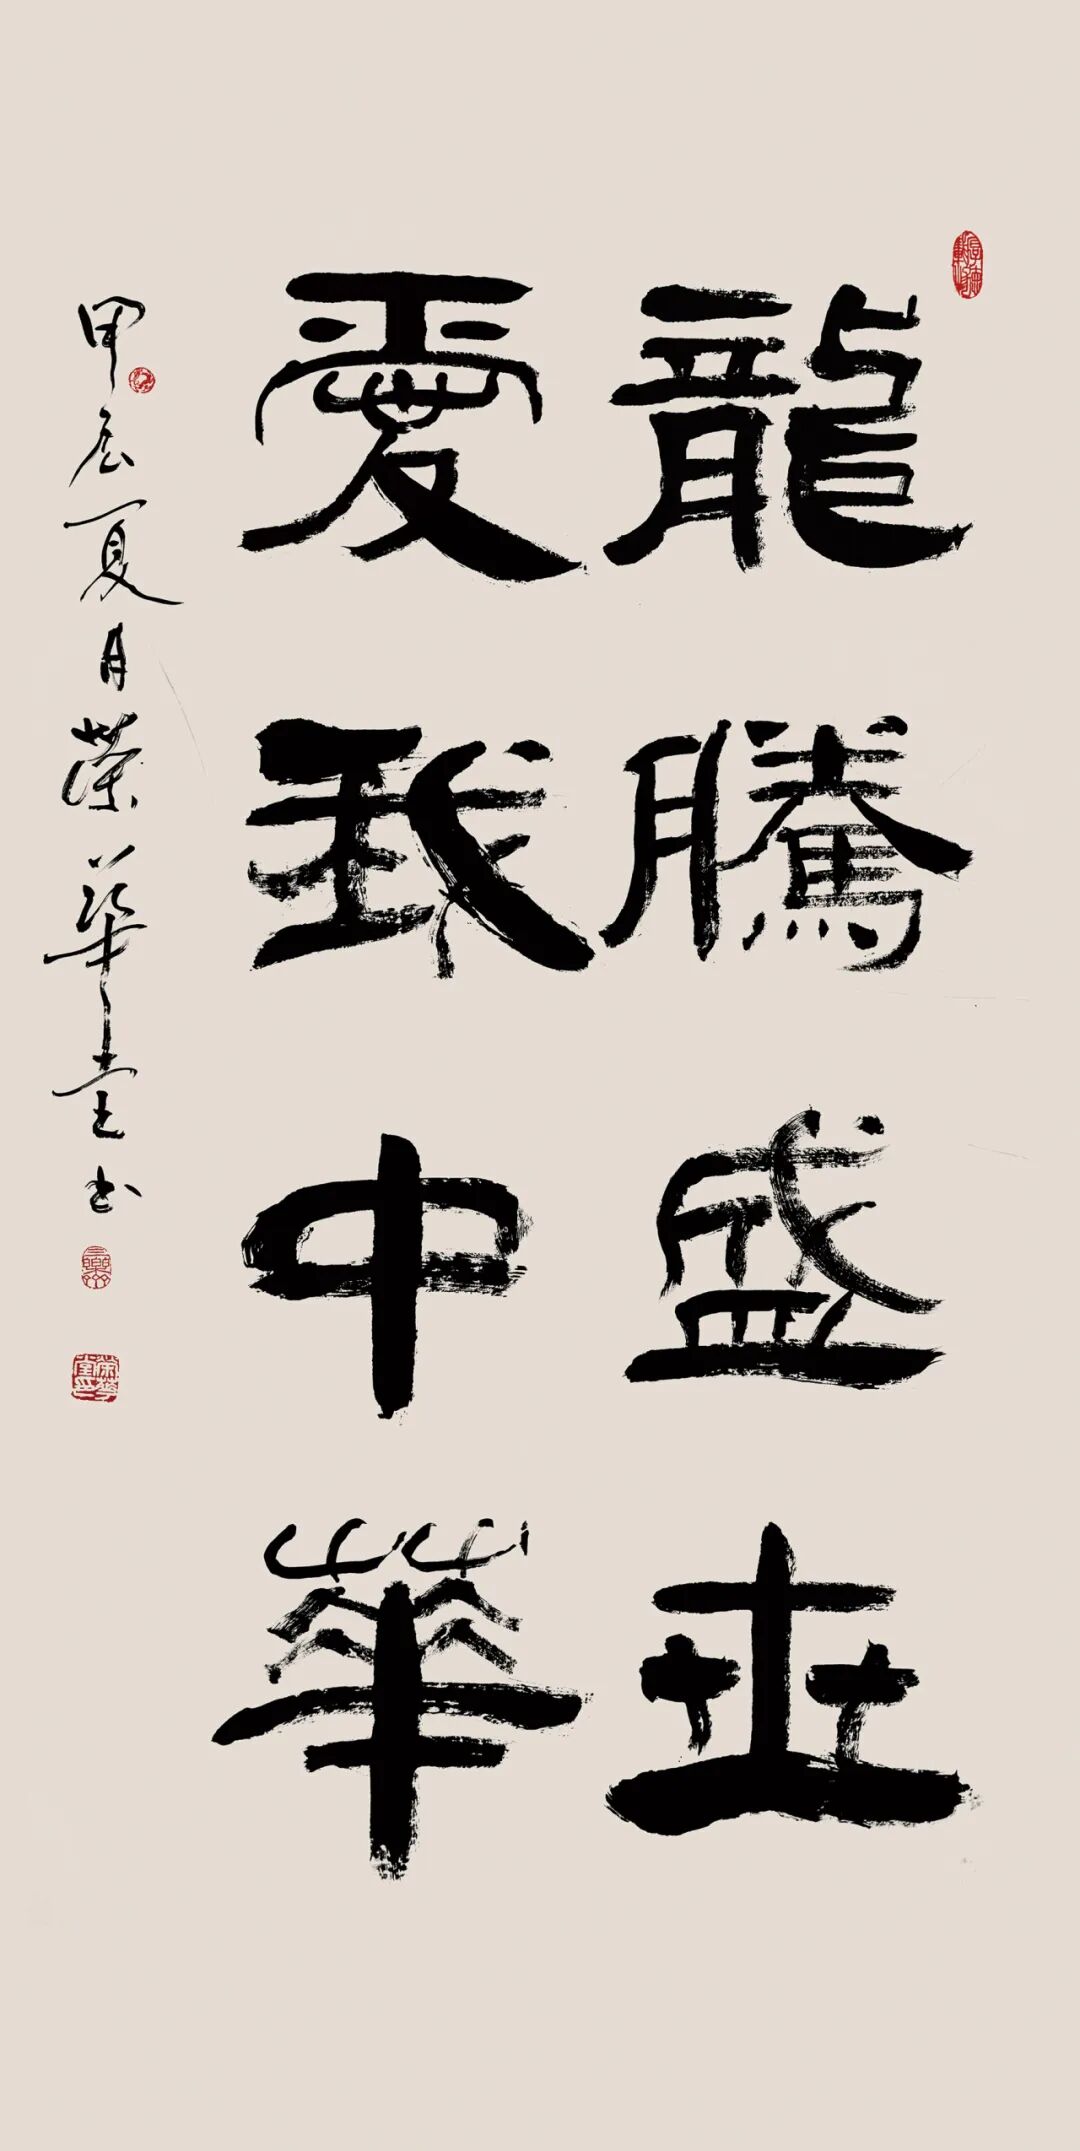 龍騰盛世
愛我中華
甲辰夏月榮華堂书